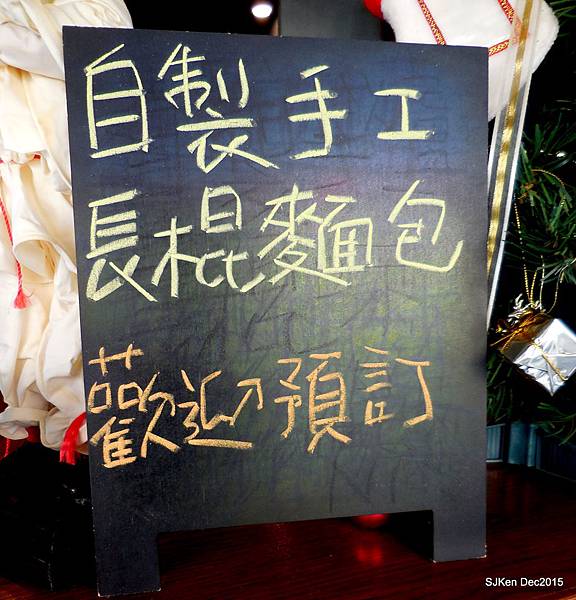 自製手工
長棍麵包
歡迎預訂
SJKen Dec2015